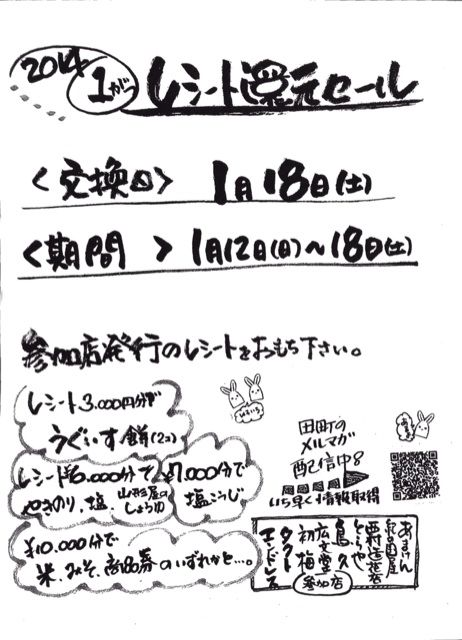 2014
1がつ
レシート還元セール
<交換日> 1月18日(土)
<期間 > 1月12日(日)〜18日(土)
参加店発行のレシートをおもち下さい。
レシート3.000円分で
うぐいす餅(2コ)
レシート¥6.000分で
やきのり、塩、山形屋のしょうゆ
¥7.000分で
塩こうじ
¥10.000分で
米、みそ、商品券のいずれかと…。
田町の
メルマガ
配信中
いち早く情報取得
あまけん
紀の国屋
とらや
島久
広文堂
初梅
タクト
エンドレス
参加店